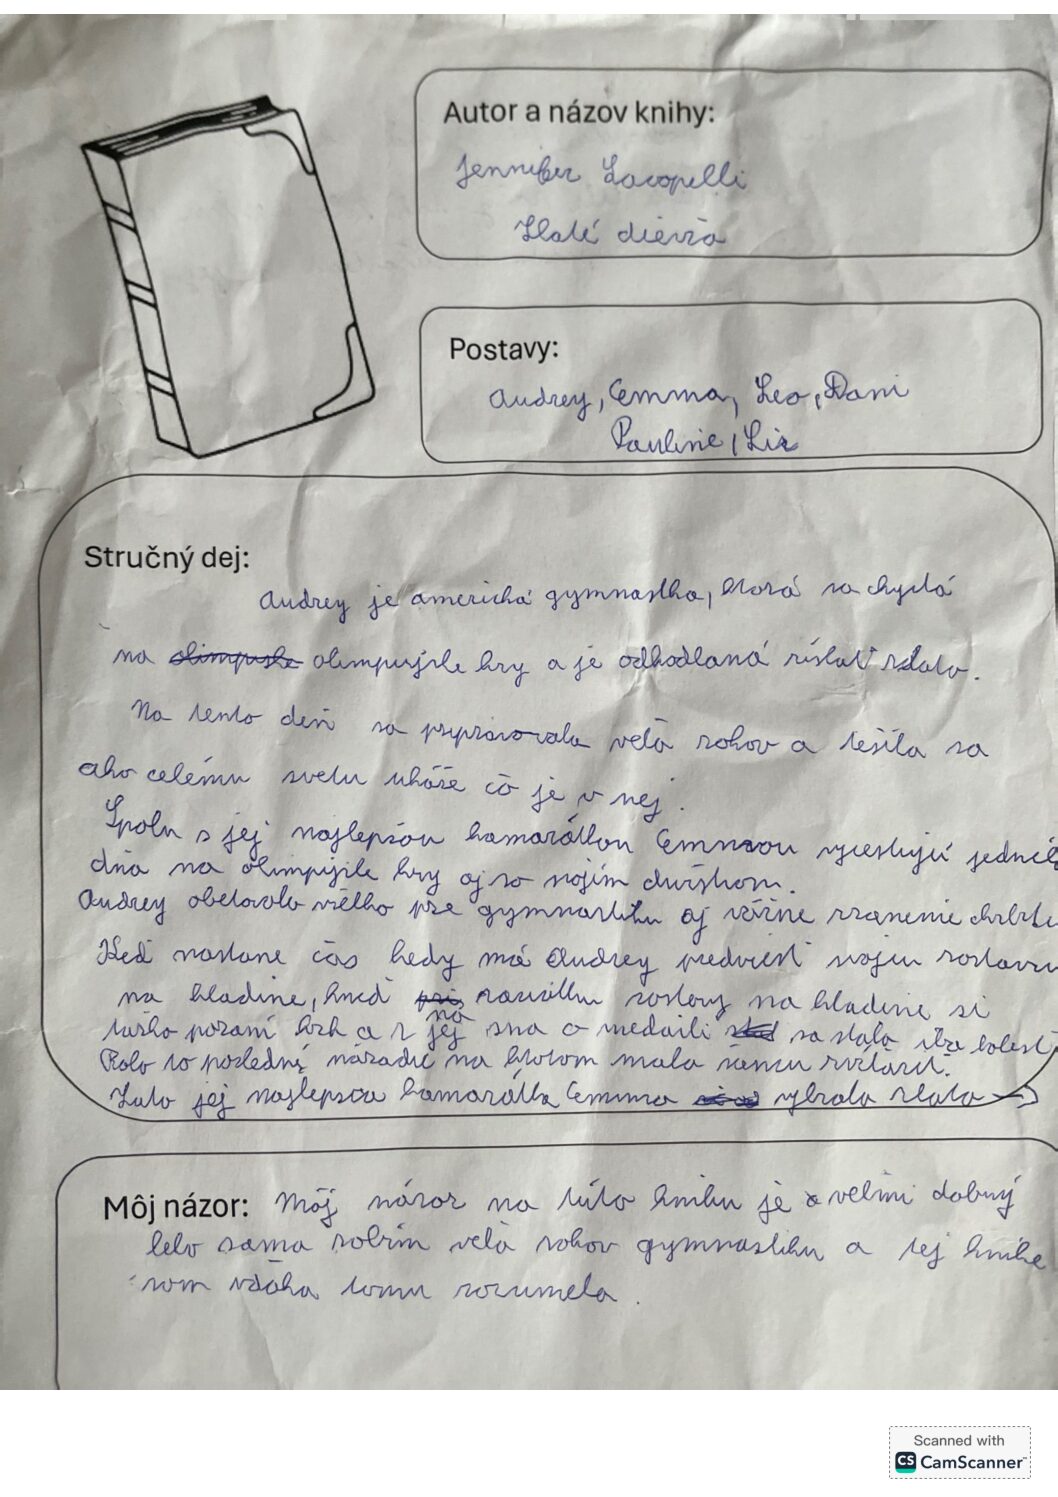 Autor a názov knihy:
Jennifer Iacopelli
Zlaté dievča
Postavy:
Audrey, Emma, Leo, Dani
Pauline, Liz
Stručný dej:
Audrey je americká gymnastka, ktorá sa chystá
na olimpijske hry a je odhodlaná získať zlato.
Na tento deň sa pripravovala veľa rokov a tešila sa
ako celému svetu ukáže čo je v nej.
Spolu s jej najlepšou kamarátkou Emmou vycestujú jedného
dňa na olimpijske hry aj so svojím družstvom.
Audrey obetovala všetko pre gymnastiku aj vážne zranenie chrbta
Keď nastane čas kedy má Audrey predviesť svoju zostavu
na kladine, hneď na začiatku zostavy na kladine si
ťažko poraní krk a z jej sna o medaili sa stala iba bolesť
Bolo to posledné náradie na ktorom mala šancu zvíťaziť.
Zato jej najlepšia kamarátka Emma vyhrala zlato →
Môj názor: Môj názor na túto knihu je veľmi dobrý
lebo sama robím veľa rokov gymnastiku a tej knihe
som vďaka tomu rozumela.
Scanned with
CS CamScanner